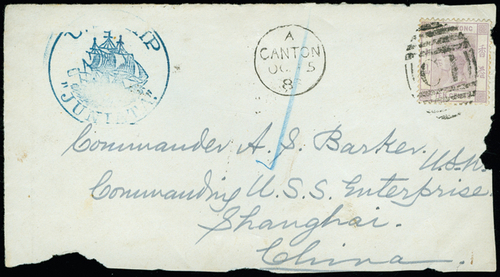 "JUNIATA"
A
CANTON
OC 5
8
KONG
Commander A. S. Barker. U.S.N.
Commanding U.S.S. Enterprise
Shanghai.
China.